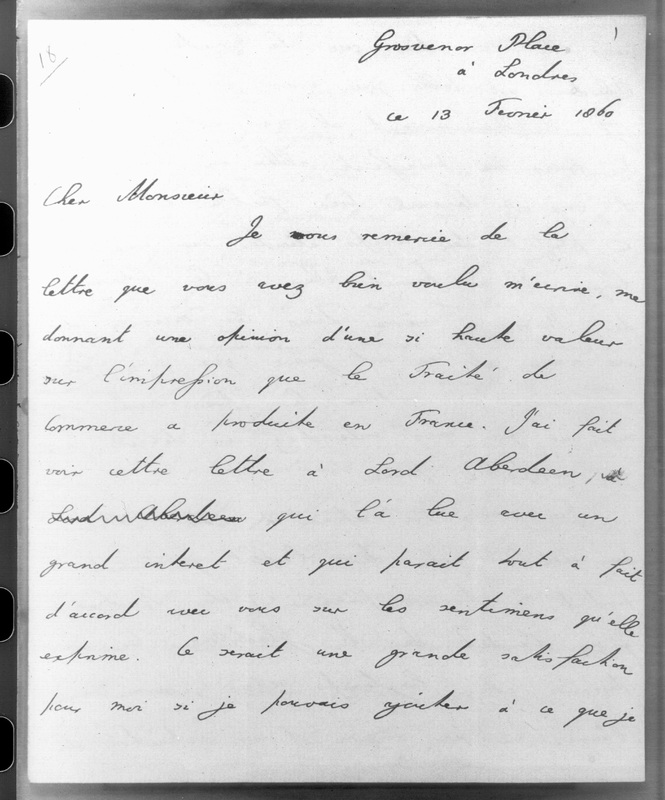 18
1
Grosvenor Place
à Londres
ce 13 Fevrier 1860
Cher Monsieur
Je vous remercie de la
lettre que vous avez bien voulu m'écrire, me
donnant une opinion d'une si haute valeur
sur l'impression que le Traité de
Commerce a produite en France. J'ai fait
voir cettre lettre à Lord Aberdeen,
Lord Aberdeen qui l'a lue avec un
grand interet et qui parait tout à fait
d'accord avec vous sur les sentimens qu'elle
exprime. Ce serait une grande satisfaction
pour moi si je pouvais ajouter à ce que je